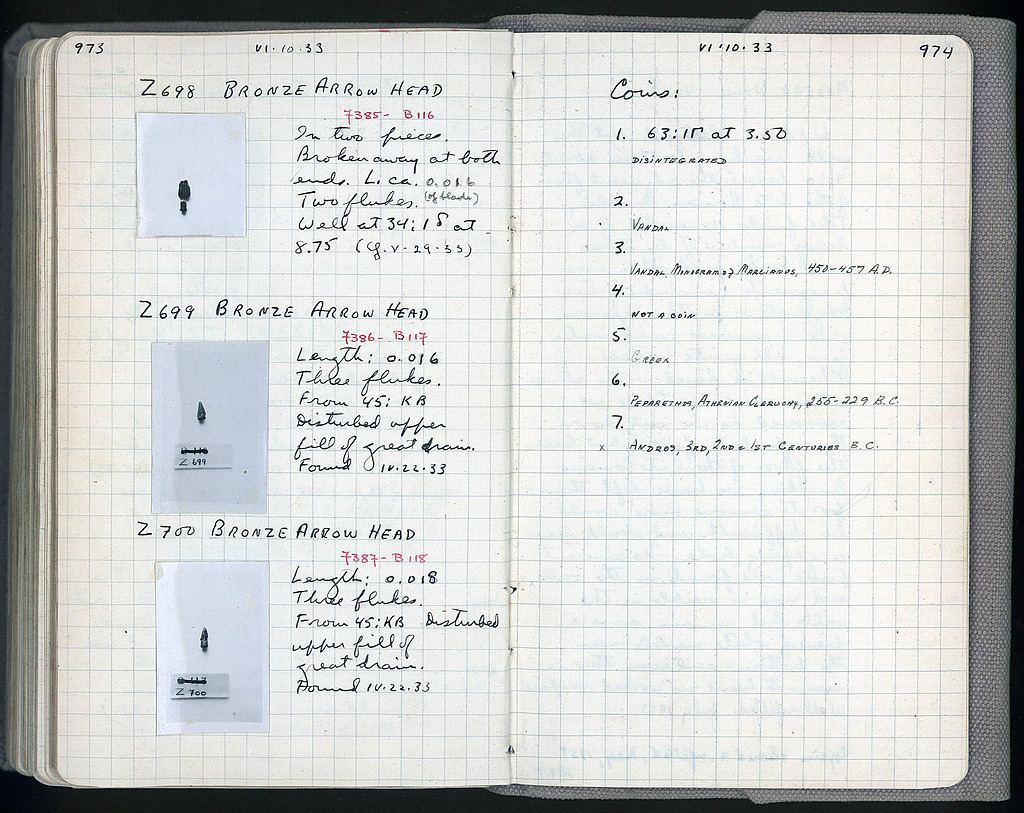 973
VI·10·33
Z698 BRONZE ARROW HEAD
7385- B116
In two pieces.
Broken away at both
ends. L. ca. 0.016
(of blade)
Two flukes.
Well at 34:IE at
8.75 (Cf. V-29-33)
Z699 BRONZE ARROW HEAD
7386- B117
Length: 0.016
Three flukes.
From 45: KB
Disturbed upper
fill of great drain.
Found IV.22.33
Z 699
Z 700 BRONZE ARROW HEAD
7387- B118
Length: 0.018
Three flukes.
From 45:KB Disturbed
upper fill of
great drain.
Found IV.22.33
Z 700
VI·10·33
974
Coins:
1. 63: at 3.50
DISINTEGRATED
2.
VANDAL
3.
VANDAL, MONOGRAM OF MARCIANUS, 450-457 A.D.
4.
NOT A COIN
5.
GREEK
6.
PEPARETHUS, ATHENIAN CLERUCHY, 255-229 B.C.
7.
x ANDROS, 3RD, 2ND & 1ST CENTURIES B.C.